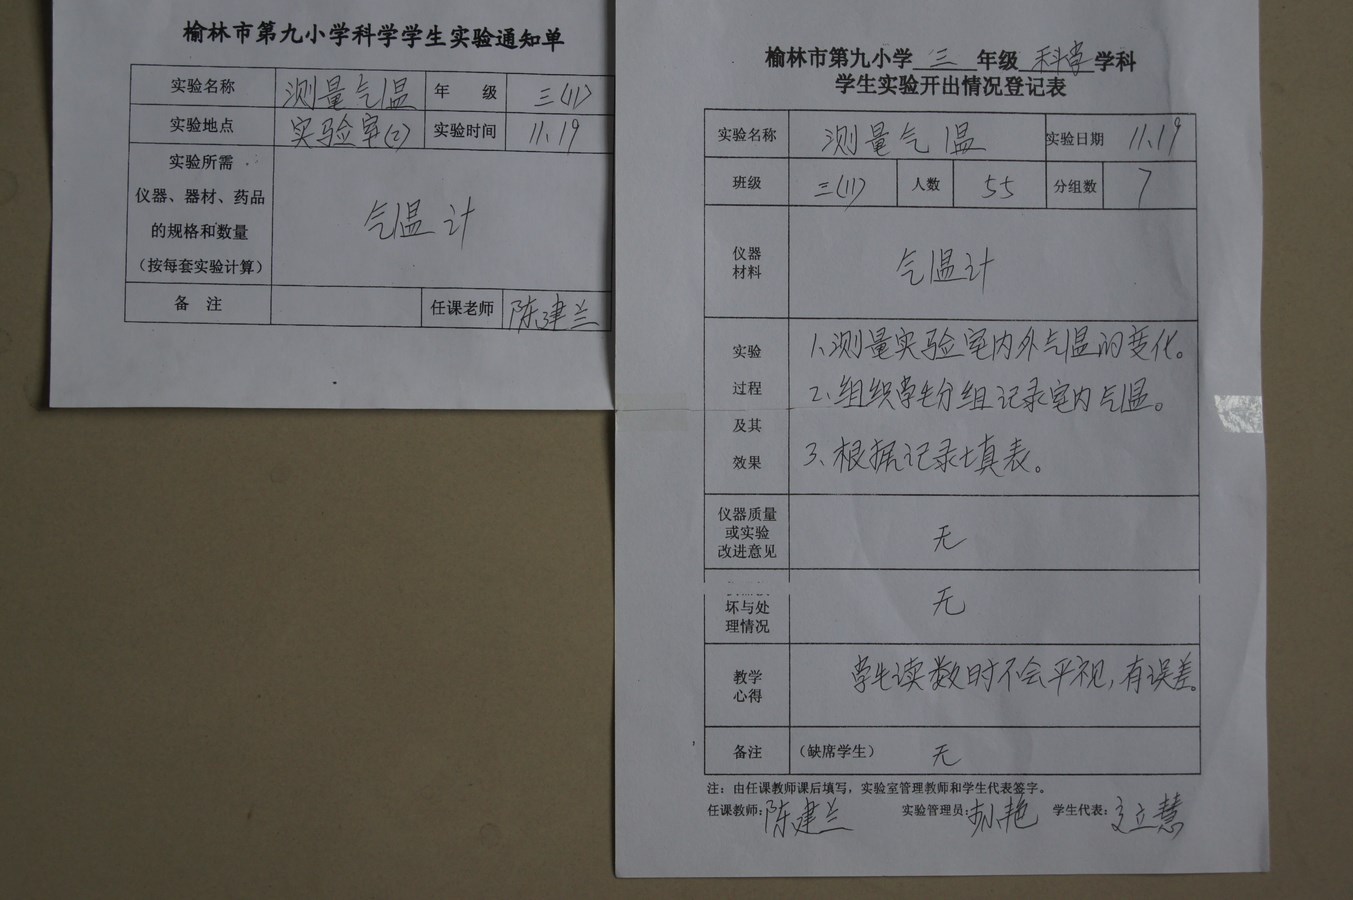 榆林市第九小学科学学生实验通知单
实验名称 测量气温 年 级 三(11)
实验地点 实验室(2) 实验时间 11.19
实验所需
仪器、器材、药品
的规格和数量
(按每套实验计算)
气温计
备 注 任课老师 陈建兰
榆林市第九小学 三 年级 科学 学科
学生实验开出情况登记表
实验名称 测量气温 实验日期 11.19
班级 三(11) 人数 55 分组数 7
仪器
材料
气温计
实验
过程
及其
效果
1、测量实验室内外气温的变化。
2、组织学生分组记录室内气温。
3、根据记录填表。
仪器质量
或实验
改进意见
无
坏与处
理情况
无
教学
心得
学生读数时不会平视,有误差。
备注 (缺席学生) 无
注:由任课教师课后填写,实验室管理教师和学生代表签字。
任课教师:陈建兰 实验管理员:艳 学生代表:立慧